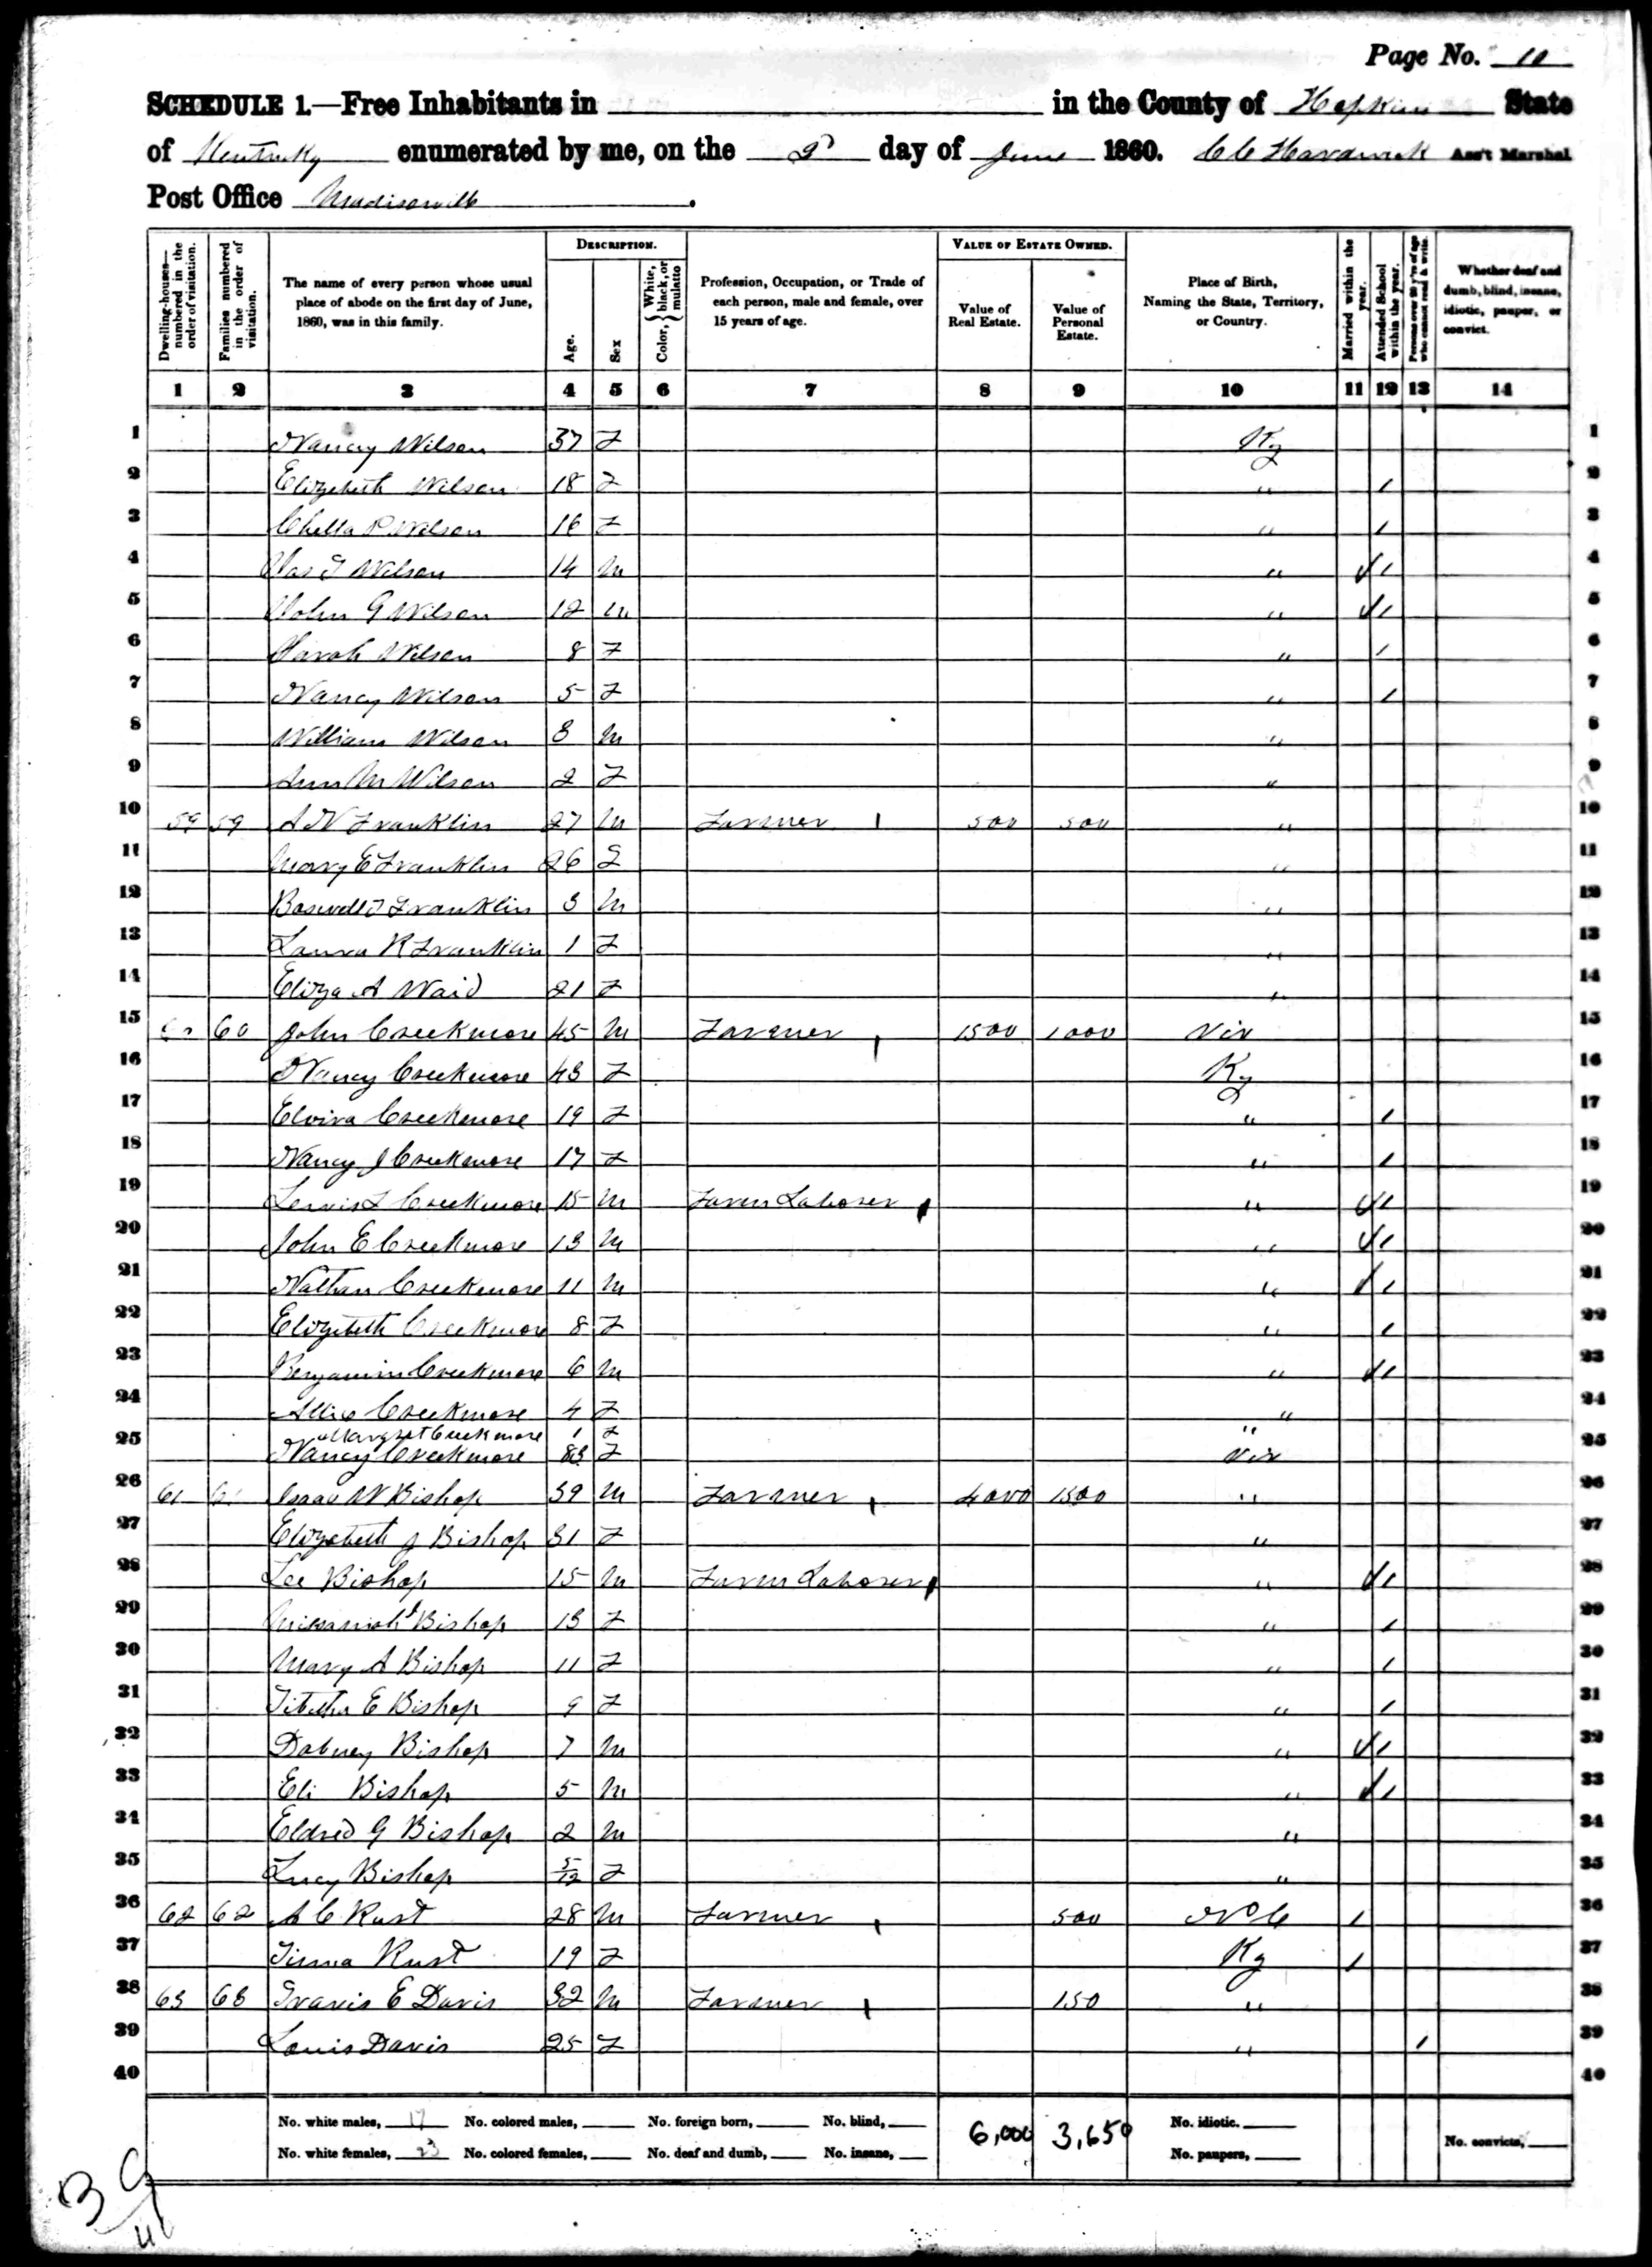 Page No. 11
SCHEDULE 1.—Free Inhabitants in in the County of Hopkins State
of Kentucky enumerated by me, on the 2d day of June 1860. C C Hardwick Ass't Marshal
Post Office Madisonville.
Dwelling-houses—numbered in the order of visitation. Families numbered in the order of visitation. The name of every person whose usual place of abode on the first day of June, 1860, was in this family. DESCRIPTION. Age. Sex Color, White, black, or mulatto Profession, Occupation, or Trade of each person, male and female, over 15 years of age. VALUE OF ESTATE OWNED. Value of Real Estate. Value of Personal Estate. Place of Birth, Naming the State, Territory, or Country. Married within the year. Attended School within the year. Persons over 20 y'rs of age who cannot read & write. Whether deaf and dumb, blind, insane, idiotic, pauper, or convict.
1 2 3 4 5 6 7 8 9 10 11 12 13 14
1 Nancy Wilson 37 F Ky 1
2 Elizebeth Wilson 18 F " / 2
3 Wilson 16 F " / 3
4 Jas T Wilson 14 M " / 4
5 John G Wilson 12 M " / 5
6 Sarah Wilson 8 F " / 6
7 Nancy Wilson 5 F " / 7
8 William Wilson 3 M " 8
9 Ann M Wilson 2 F " 9
10 59 59 A N Franklin 27 M Farmer 500 500 " 10
11 Mary E Franklin 26 F " 11
12 Boswell T Franklin 3 M " 12
13 Laura R Franklin 1 F " 13
14 Eliza A Waid 21 F " 14
15 60 60 John Creekmore 45 M Farmer 1500 1000 Vir 15
16 Nancy Creekmore 43 F Ky 16
17 Elvira Creekmore 19 F " / 17
18 Nancy J Creekmore 17 F " / 18
19 Lewis L Creekmore 15 M Farm Laborer " / 19
20 John E Creekmore 13 M " / 20
21 Nathan Creekmore 11 M " / 21
22 Elizebeth Creekmore 8 F " / 22
23 Benjamin Creekmore 6 M " / 23
24 Allis Creekmore 4 F " 24
Margret Creekmore 1 F "
25 Nancy Creekmore 83 F Vir 25
26 61 61 Isaac W Bishop 39 M Farmer 4000 1500 " 26
27 Elizebeth J Bishop 31 F " 27
28 Lee Bishop 15 M Farm Laborer " / 28
29 Bishop 13 F " / 29
30 Mary A Bishop 11 F " / 30
31 Titatha E Bishop 9 F " / 31
32 Dabney Bishop 7 M " / 32
33 Eli Bishop 5 M " / 33
34 Eldred G Bishop 2 M " 34
35 Lucy Bishop 5/12 F " 35
36 62 62 A C Rust 28 M Farmer 500 N C / 36
37 Rust 19 F Ky / 37
38 63 63 Travis E Davis 32 M Farmer 150 " 38
39 Louis Davis 25 F " / 39
40 40
No. white males, 17 No. colored males, No. foreign born, No. blind, 6,000 3,650 No. idiotic.
No. white females, 23 No. colored females, No. deaf and dumb, No. insane, No. paupers, No. convicts,
39